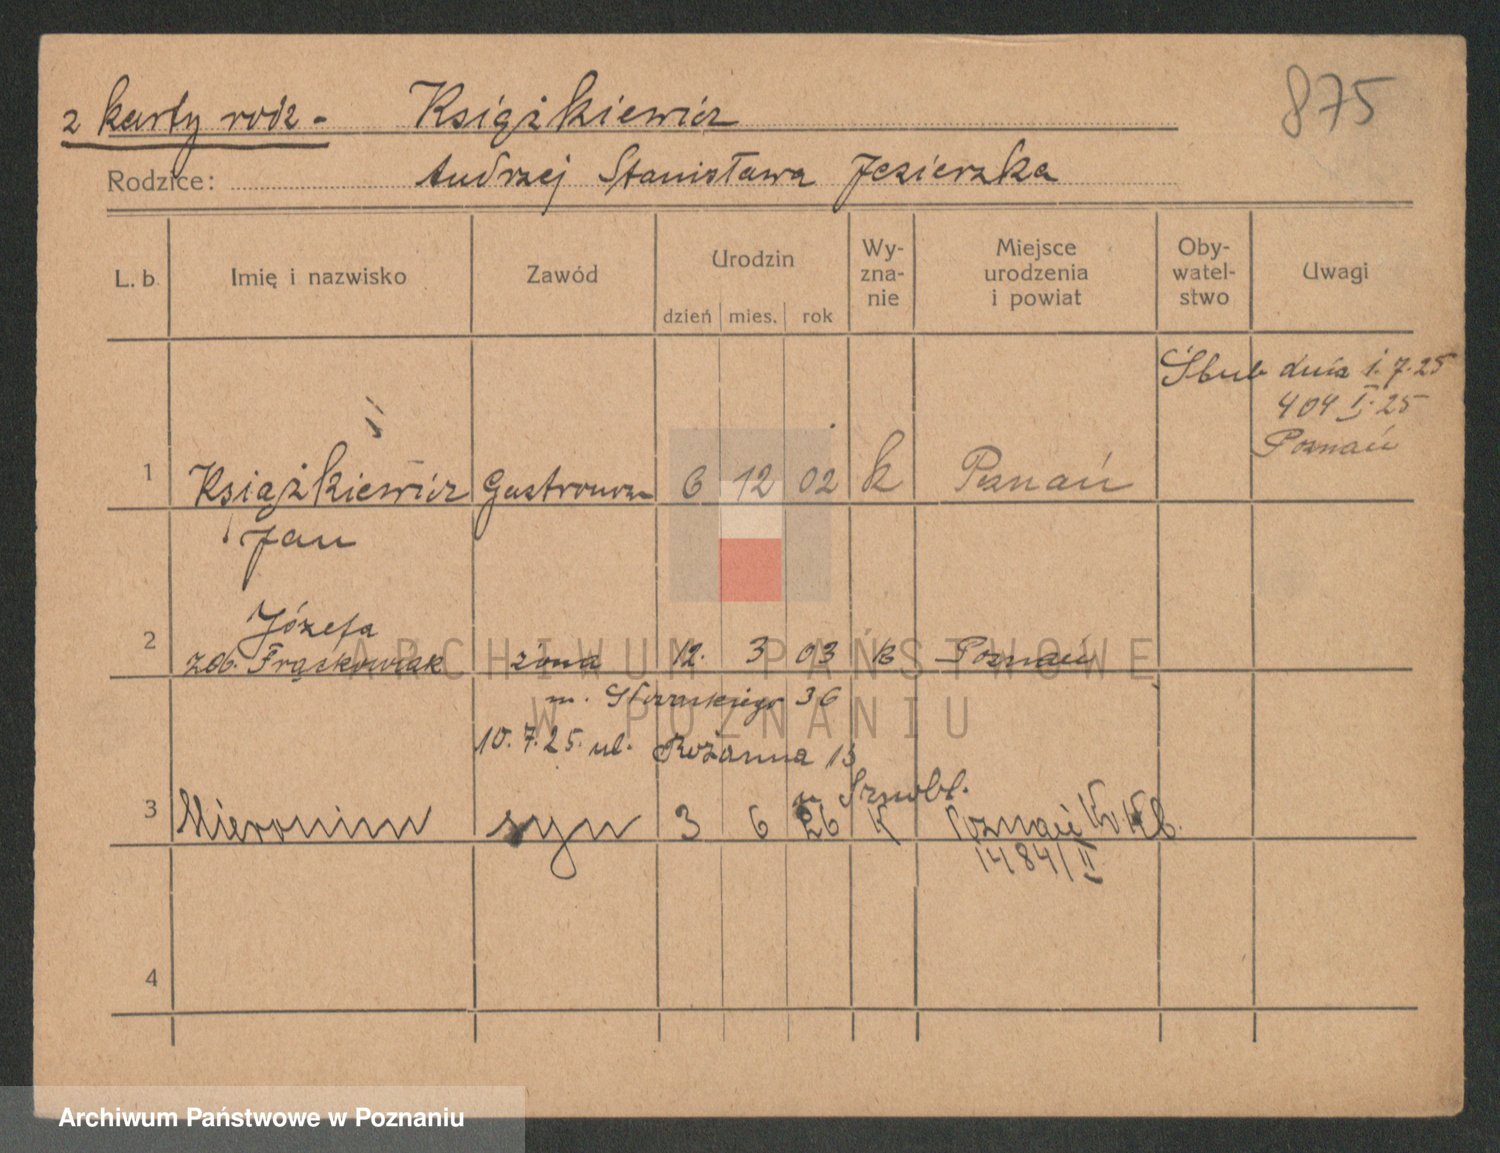 z karty rodz - Książkiewicz 875
Rodzice: Andrzej Stanisława Jezierzka
L. b. Imię i nazwisko Zawód Urodzin Wy- Miejsce Oby- Uwagi
zna- urodzenia watel-
nie i powiat stwo
dzień mies. rok
Ślub dnia 1.7.25
404 I. 25
Poznań
1 Książkiewicz Gastronom 6 12 02 k Poznań
Jan
Józefa
2 zd. Frąckowiak żona 12. 3 03 k Poznań
36
10.7.25. ul. Różanna 13
3 Hieronim syn 3 6 26 K Poznań
1484/II
4
ARCHIWUM PAŃSTWOWE
W POZNANIU
Archiwum Państwowe w Poznaniu